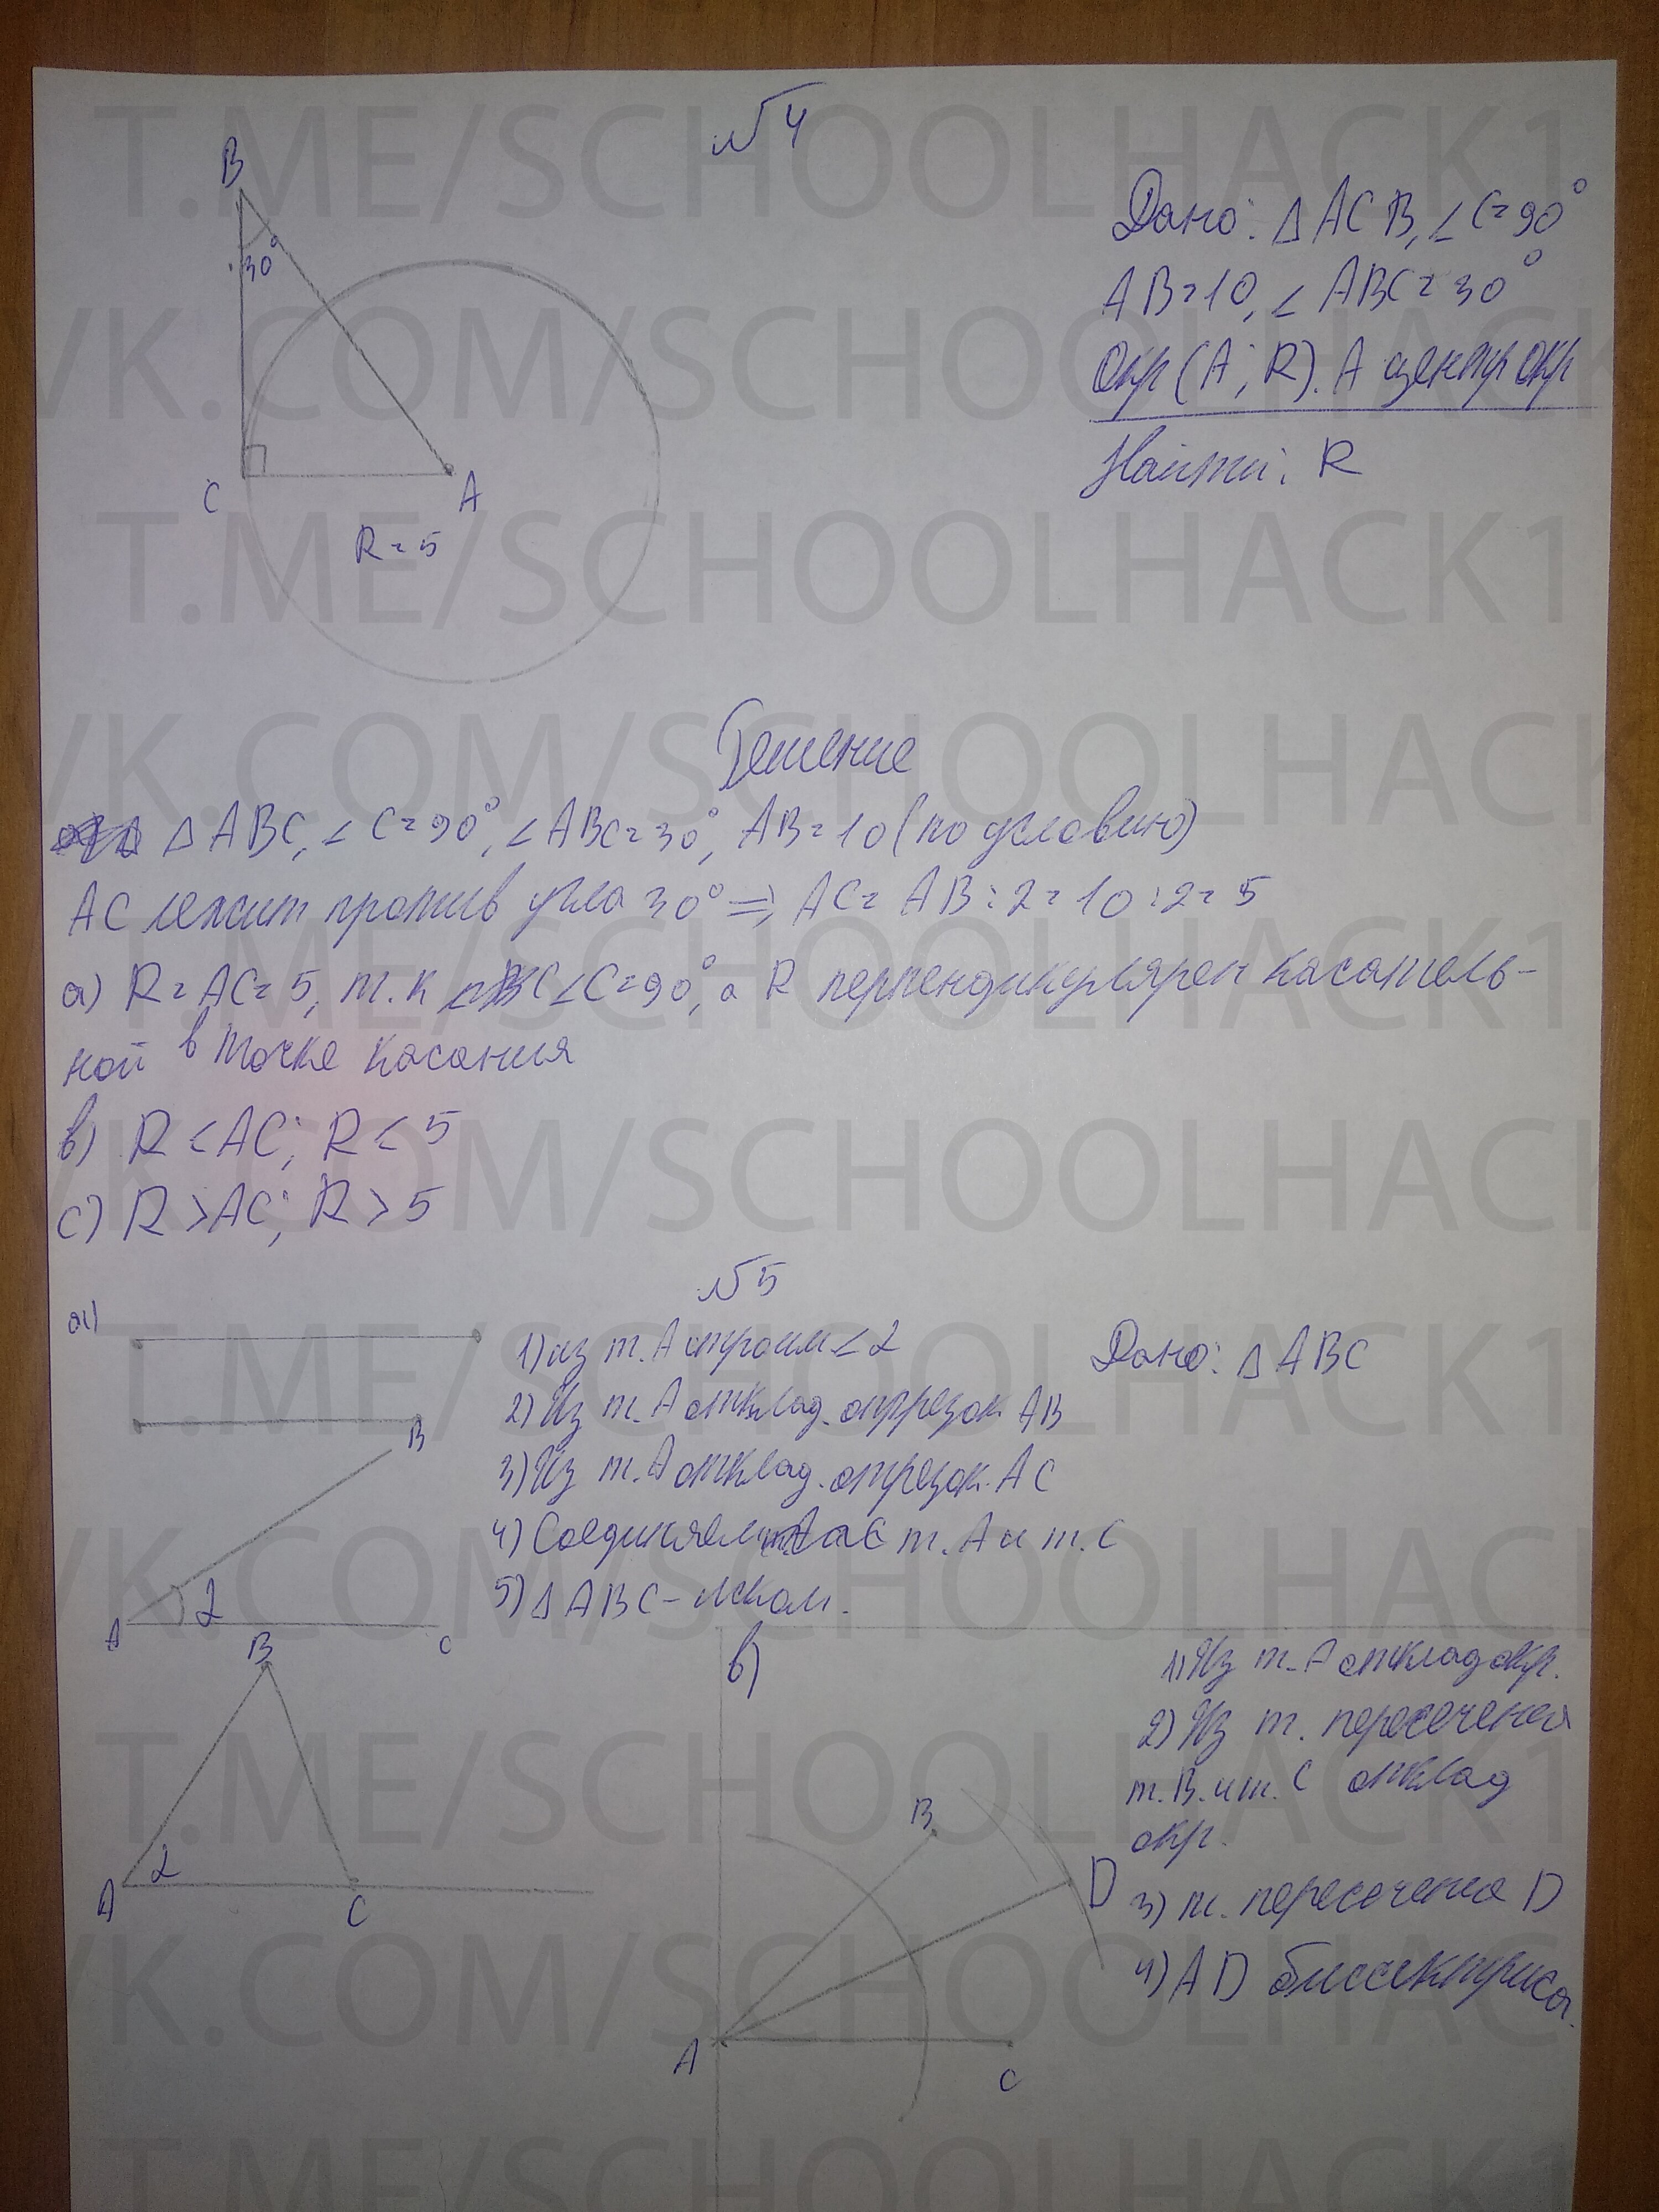 №4
B
30°
C
A
R = 5
Дано: Δ ACB, ∠C=90°
AB=10, ∠ABC=30°
Окр(A; R). A центр окр
Найти: R
Решение
Δ ABC, ∠C=90°, ∠ABC=30°, AB=10 (по условию)
AC лежит против угла 30° => AC= AB:2=10:2=5
a) R=AC=5, т.к ∠C=90°, а R перпендикулярен касатель-
ной в точке касания
в) R < AC; R < 5
c) R > AC; R > 5
№5
a)
1) из т. A строим ∠2
2) Из т. A отклад. отрезок AB
3) Из т. A отклад. отрезок. AC
4) Соединяем т. A и т. C
5) Δ ABC – иском.
Дано: Δ ABC
B
A
2
C
B
A
2
C
в)
1) Из т. A отклад окр.
2) Из т. пересечения
т. B. и т. C отклад
окр.
3) т. пересечения D
4) AD биссектриса.
B
D
A
C
T.ME/SCHOOLHACK1
VK.COM/SCHOOLHACK
T.ME/SCHOOLHACK1
VK.COM/SCHOOLHACK
T.ME/SCHOOLHACK1
VK.COM/SCHOOLHACK
T.ME/SCHOOLHACK1
VK.COM/SCHOOLHACK
T.ME/SCHOOLHACK1
VK.COM/SCHOOLHACK
T.ME/SCHOOLHACK1